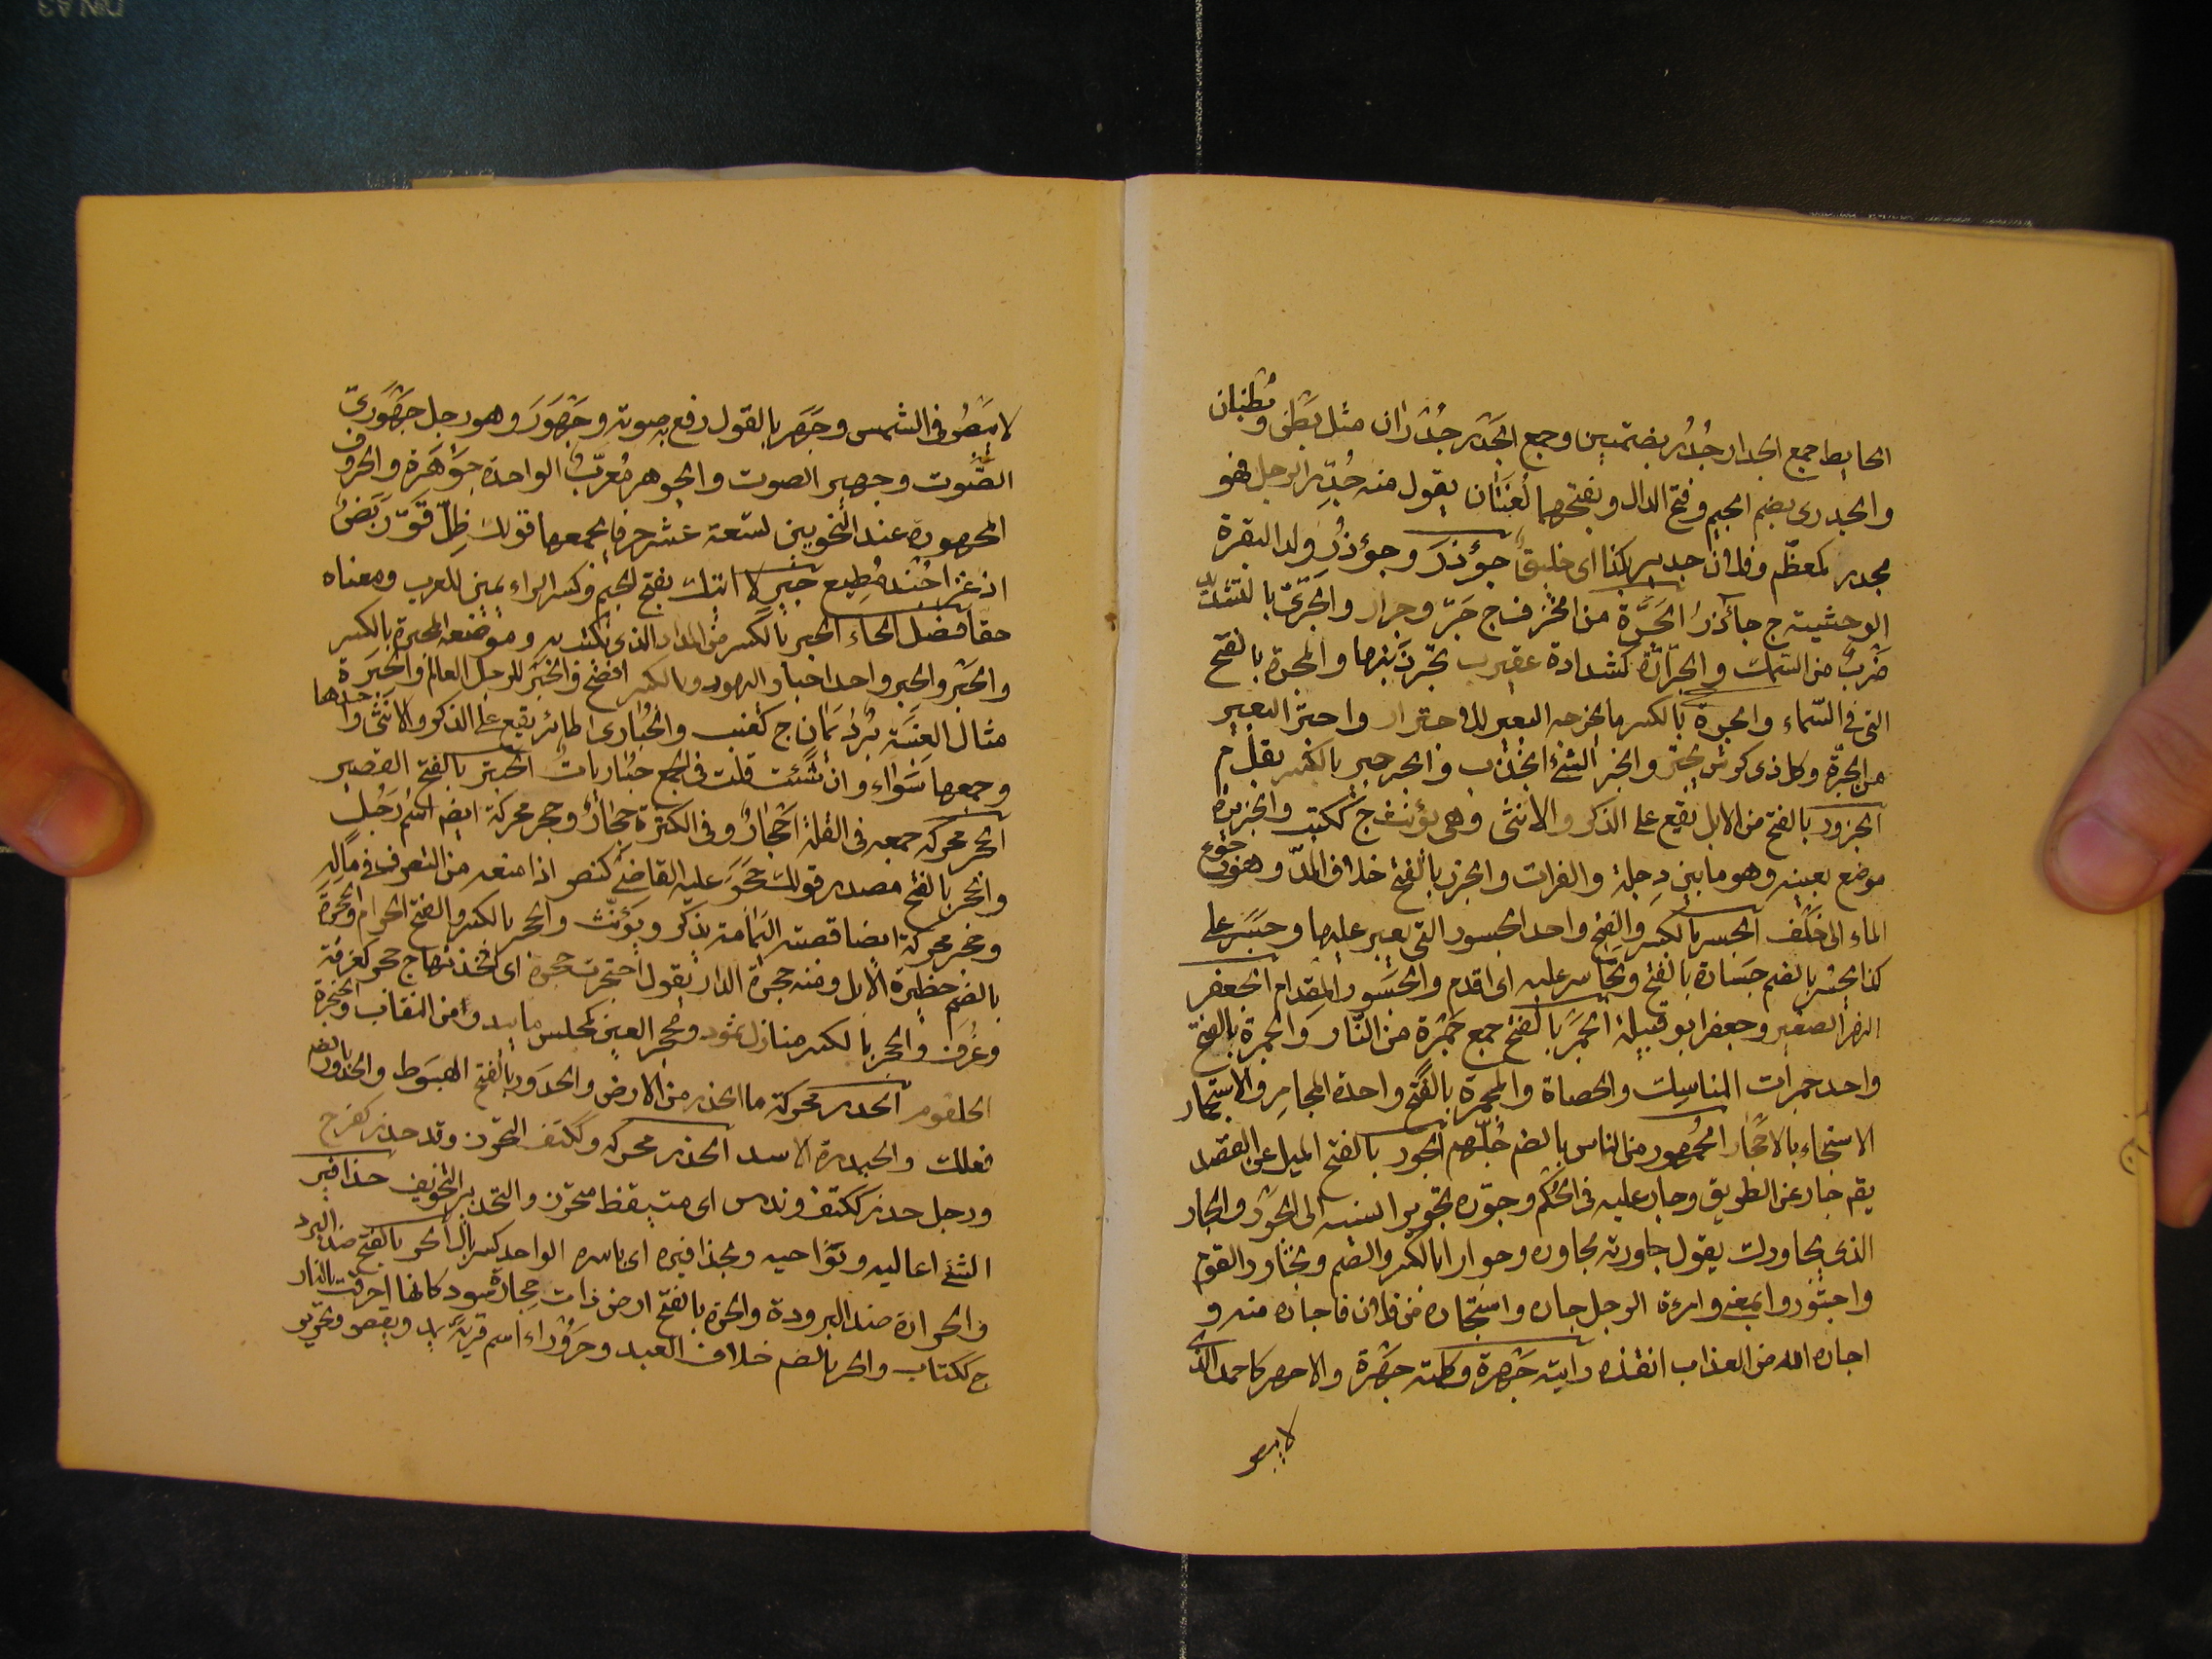 الحايط جمع الجدار جُدُر بضمّتين وجمع الجَدْر جُدْران مثل بَطْن وبُطْنان
والجدرى بضم الجيم وفتح الدال وبفتحهما لُغَتَان يقول منه جُدِّر الرجل فهو
مجدر كمعظّم وفلان جدير بكذا اى خليق جُؤذَر وجؤذُر ولد البقرة
الوحشية ج جآذر الجَرَّة من الخزف ج جَرّ وجرار والجِرّىّ بالتشديد
ضَرْبٌ من السّمك والجرّارَة كشدادة عقيرب تجرّ ذنبها والمجرة بالفتح
التى فى السّماء والجِرّة بالكسر ما يخرجه البعير للاجترار واجترّ البعير
من الجرّة وكل ذى كرش يجترّ وانجرّ الشئ انجذب والجرجير بالكسر بقل م
الجزور بالفتح من الابل يقع على الذكر والانثى وهى يؤنث ج ككتب والجزيرة
موضع بعينه وهو ما بين دِجلة والفرات والجزر بالفتح خلاف المدّ وهو رجوع
الماء الى خَلْف الجسر بالكسر والفتح واحد الجسور التى يعبر عليها وجَسَر على
كذا يجسُر بالضم جَسَارة بالفتح وتجاسر عليه اى اقدم والجَسُور المقدام الجعفر
النهر الصغير وجعفر ابو قبيلة الجَمْر بالفتح جمع جَمْرة من النّار والجمرة بالفتح
واحد جمرات المناسك والحصاة والمجمرة بالفتح واحدة المجامر والاستجمار
الاستنجاء بالاحجار الجُمْهور من الناس بالضم جُلّهم الجور بالفتح الميل عن القصد
يقم جار عن الطريق وجار عليه فى الحُكْم وجوّره تجويرا نسبه الى الجَوْر والجار
الذى يجاورك يقول جاورته مجاورة وجوارا بالكسر والضم وتجاور القوم
واجتوروا بمعنى وامرءة الرجل جاره واستجاره من فلان فاجاره منه و
اجاره الله من العذاب انقذه رايته جَهْرة وكلمته جَهْرة والاجهر كاحمد الذى
لا يبصر
لا يبصُر فى الشمس وجَهَر بالقول رفع به صوته وجَهْوَرَ وهو رجل جَهْوَرىّ
الصّوت وجهير الصوت والجوهر مُعرّبٌ الواحدة جَوْهَرة والحروف
المجهورة عند النحويين تسعة عشر حرفا يجمعها قولك ظِلّ قَوٍّ رَبَضٌ
اذ غزا جُنْدٌ مُطيع جَيرِ لا اتيك بفتح الجيم وكسر الراء يمين للعرب ومعناه
حقا فصل الحاء الحبر بالكسر من المداد الذى يكتب به وموضعه المحبرة بالكسر
والحَبْر والحبر واحد احبار اليهود وبالكسر افصح والحَبْر للرجل العالم والحِبَرة
مثال العِنَبَة بُرْدُ يَمَانٍ ج كعنب والحُبَارى طائر يقع على الذكر والانثى واحدها
وجمعها سَوَاء وان شِئت قلت فى الجمع حُبَاريات الحبتر بالفتح القصير
الحجر محركة جمعه فى القلة احْجَارٌ وفى الكثرة حجارٌ وحجر محركة ايضم اسْم رَجُل
والحجر بالفتح مصدر قولك حَجَرَ عليه القاضى كنصر اذا منعه من التصرف فى ماله
وحجر محركة ايضا قصبة اليَمَامة يذكّر ويؤنّث والحجر بالكسر والفتح الحرام والحُجْرَة
بالضم حظيرة الابل ومنه حجرة الدار يقول احتجرت حجرة اى اتخذتها ج حجر كغرفة
وغُرَف والحجر بالكسر منازل ثمود ومَحجِر العين كمجلس ما يبدو من النقاب والحنجرة
الحلقوم الحدر محركة ما انحدر من الارض والحَدُور بالفتح الهبوط والحدور بالضم
فعلك والحيدرة الاسد الحذر محركه وككتف التحرز وقد حذر كفرح
ورجل حذر ككتف وندس اى متيقظ متحرز والتحذير التخويف حذافير
الشئ اعاليه ونَوَاحيه وبحذافيره اى باسره الواحد كسربال الحر بالفتح ضد البرد
والحرارة ضد البرودة والحرّة بالفتح ارض ذات حجارة سود كانها احرقت بالنار
ج ككتاب والحر بالضم خلاف العبد وحَرُوراء اسم قرية يمد ويقصر وتحرير